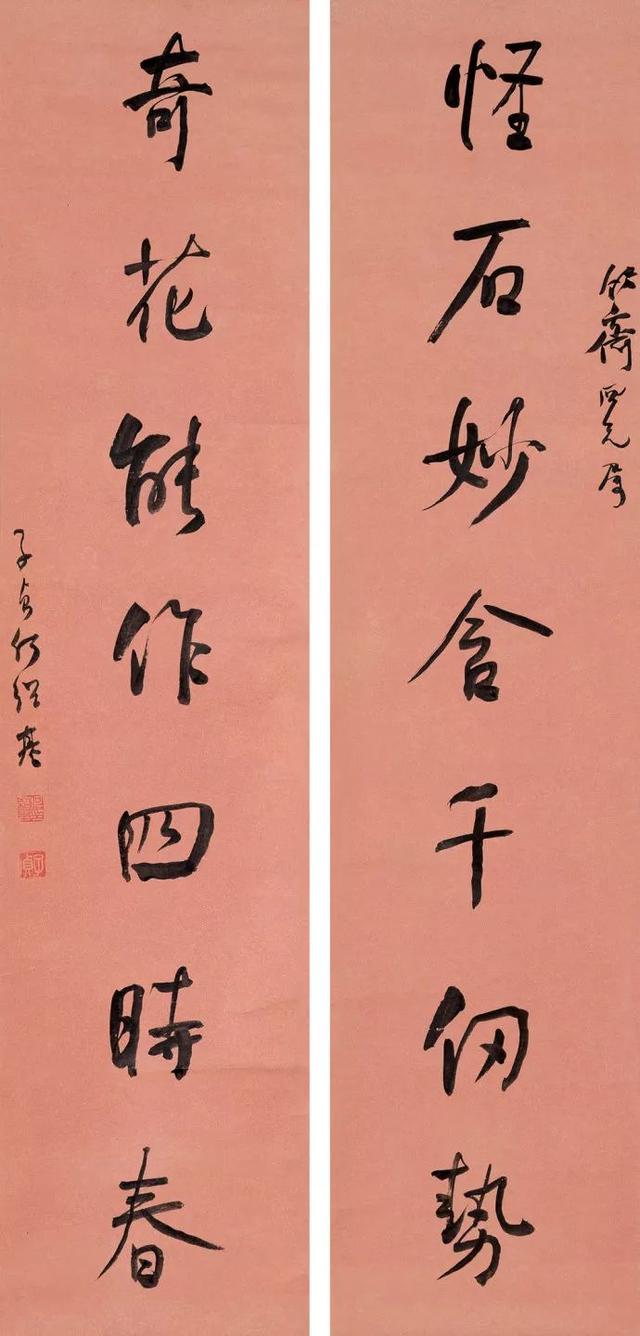 怪石妙含千仞勢
齋四兄屬
奇花能作四時春
子貞何紹基